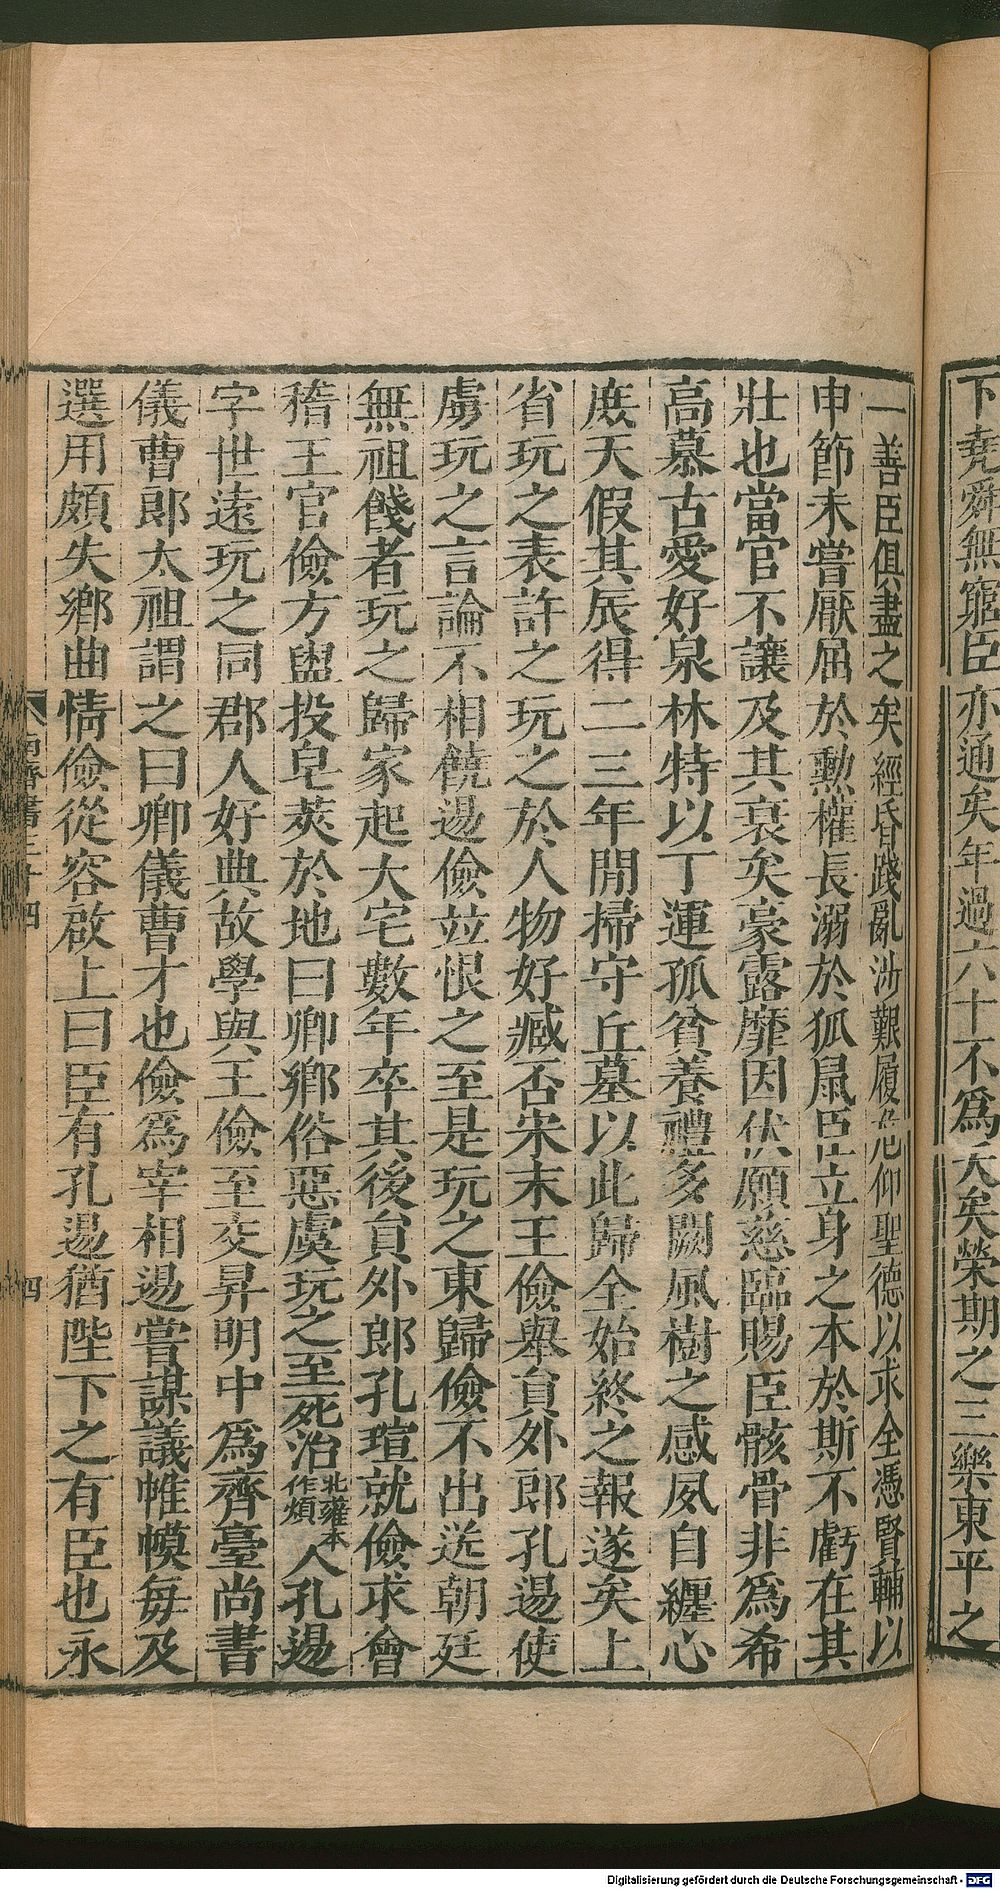 下堯舜無窮臣亦通矣年過六十不為夭矣榮期之三樂東平之
一善臣俱盡之矣經昏踐亂涉艱履危仰聖德以求全憑賢輔以
申節未嘗厭屈於勲權長溺於狐鼠臣立身之本於斯不虧在其
壯也當官不讓及其衰矣豪露靡因伏願慈臨賜臣骸骨非為希
高慕古愛好泉林特以丁運孤貧養禮多闕風樹之感夙自纏心
庶天假其辰得二三年閒掃守丘墓以此歸全始終之報遂矣上
省玩之表許之玩之於人物好臧否宋末王儉舉貟外郎孔逷使
虜玩之言論不相饒逷儉竝恨之至是玩之東歸儉不出送朝廷
無祖餞者玩之歸家起大宅數年卒其後貟外郎孔瑄就儉求會
稽王官儉方盥投皂莢於地曰卿鄉俗惡虞玩之至死治北雍本作煩人孔逷
字世遠玩之同郡人好典故學與王儉至交昇明中為齊臺尚書
儀曹郎太祖謂之曰卿儀曹才也儉為宰相逷嘗謀議帷幙每及
選用頗失鄉曲情儉從容啟上曰臣有孔逷猶陛下之有臣也永
南齊書三十四
四
Digitalisierung gefördert durch die Deutsche Forschungsgemeinschaft - DFG